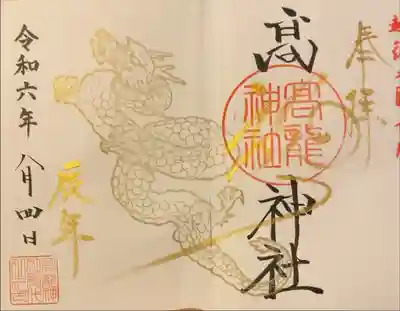 奉拝
高 神社
高龍
神社
辰年
令和六年 八月四日